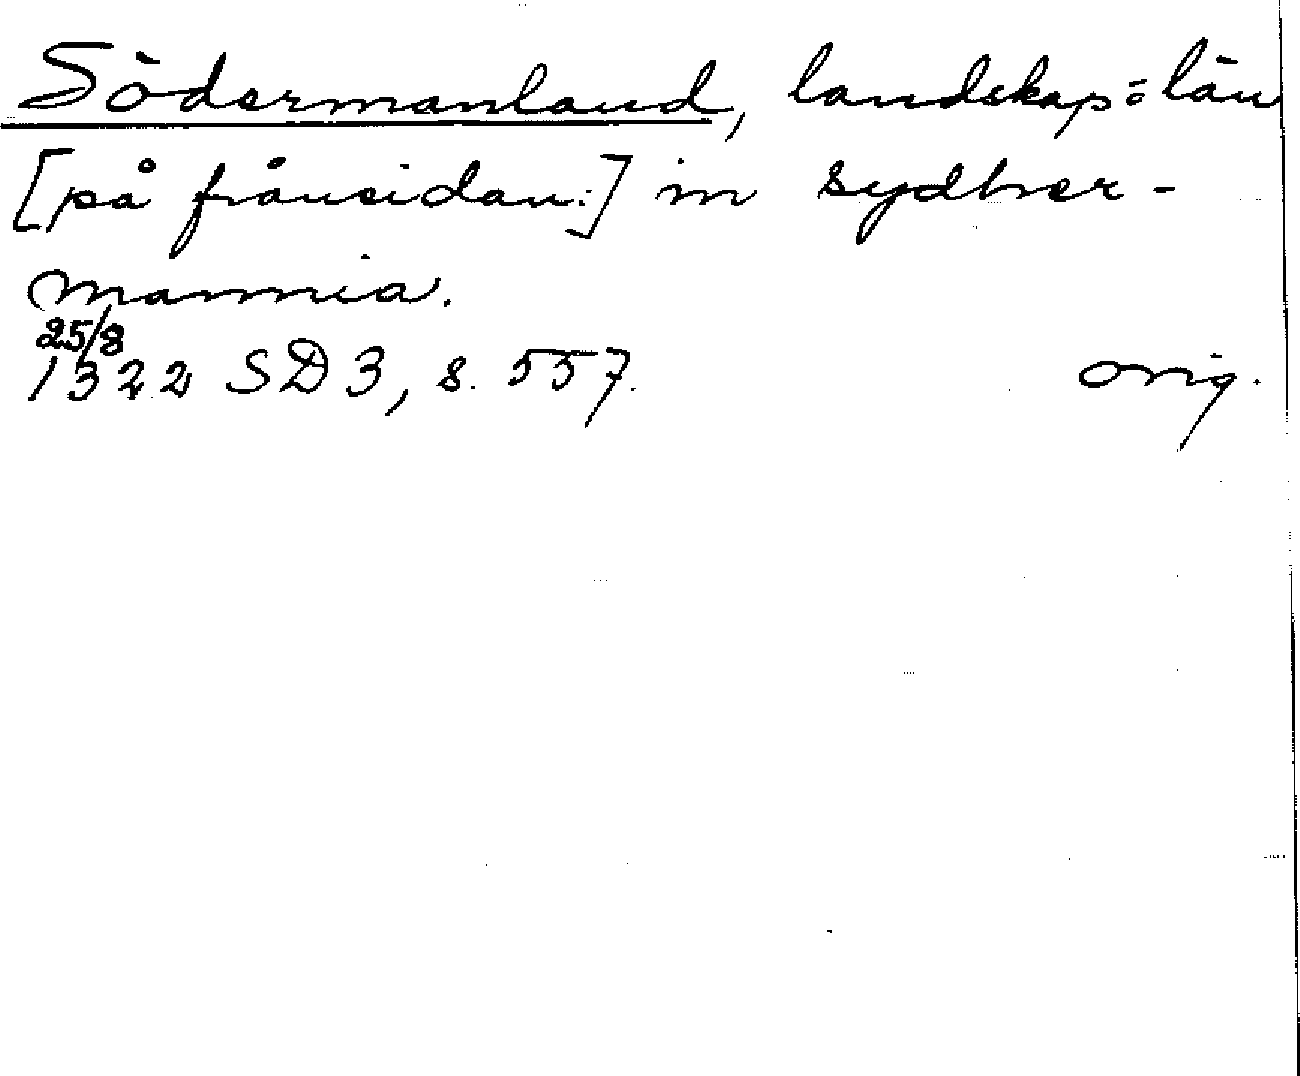 Södermanland, landskap = län
[på frånsidan:] in sydher-
mannia.
25/8
1322 SD 3, s. 557. orig.